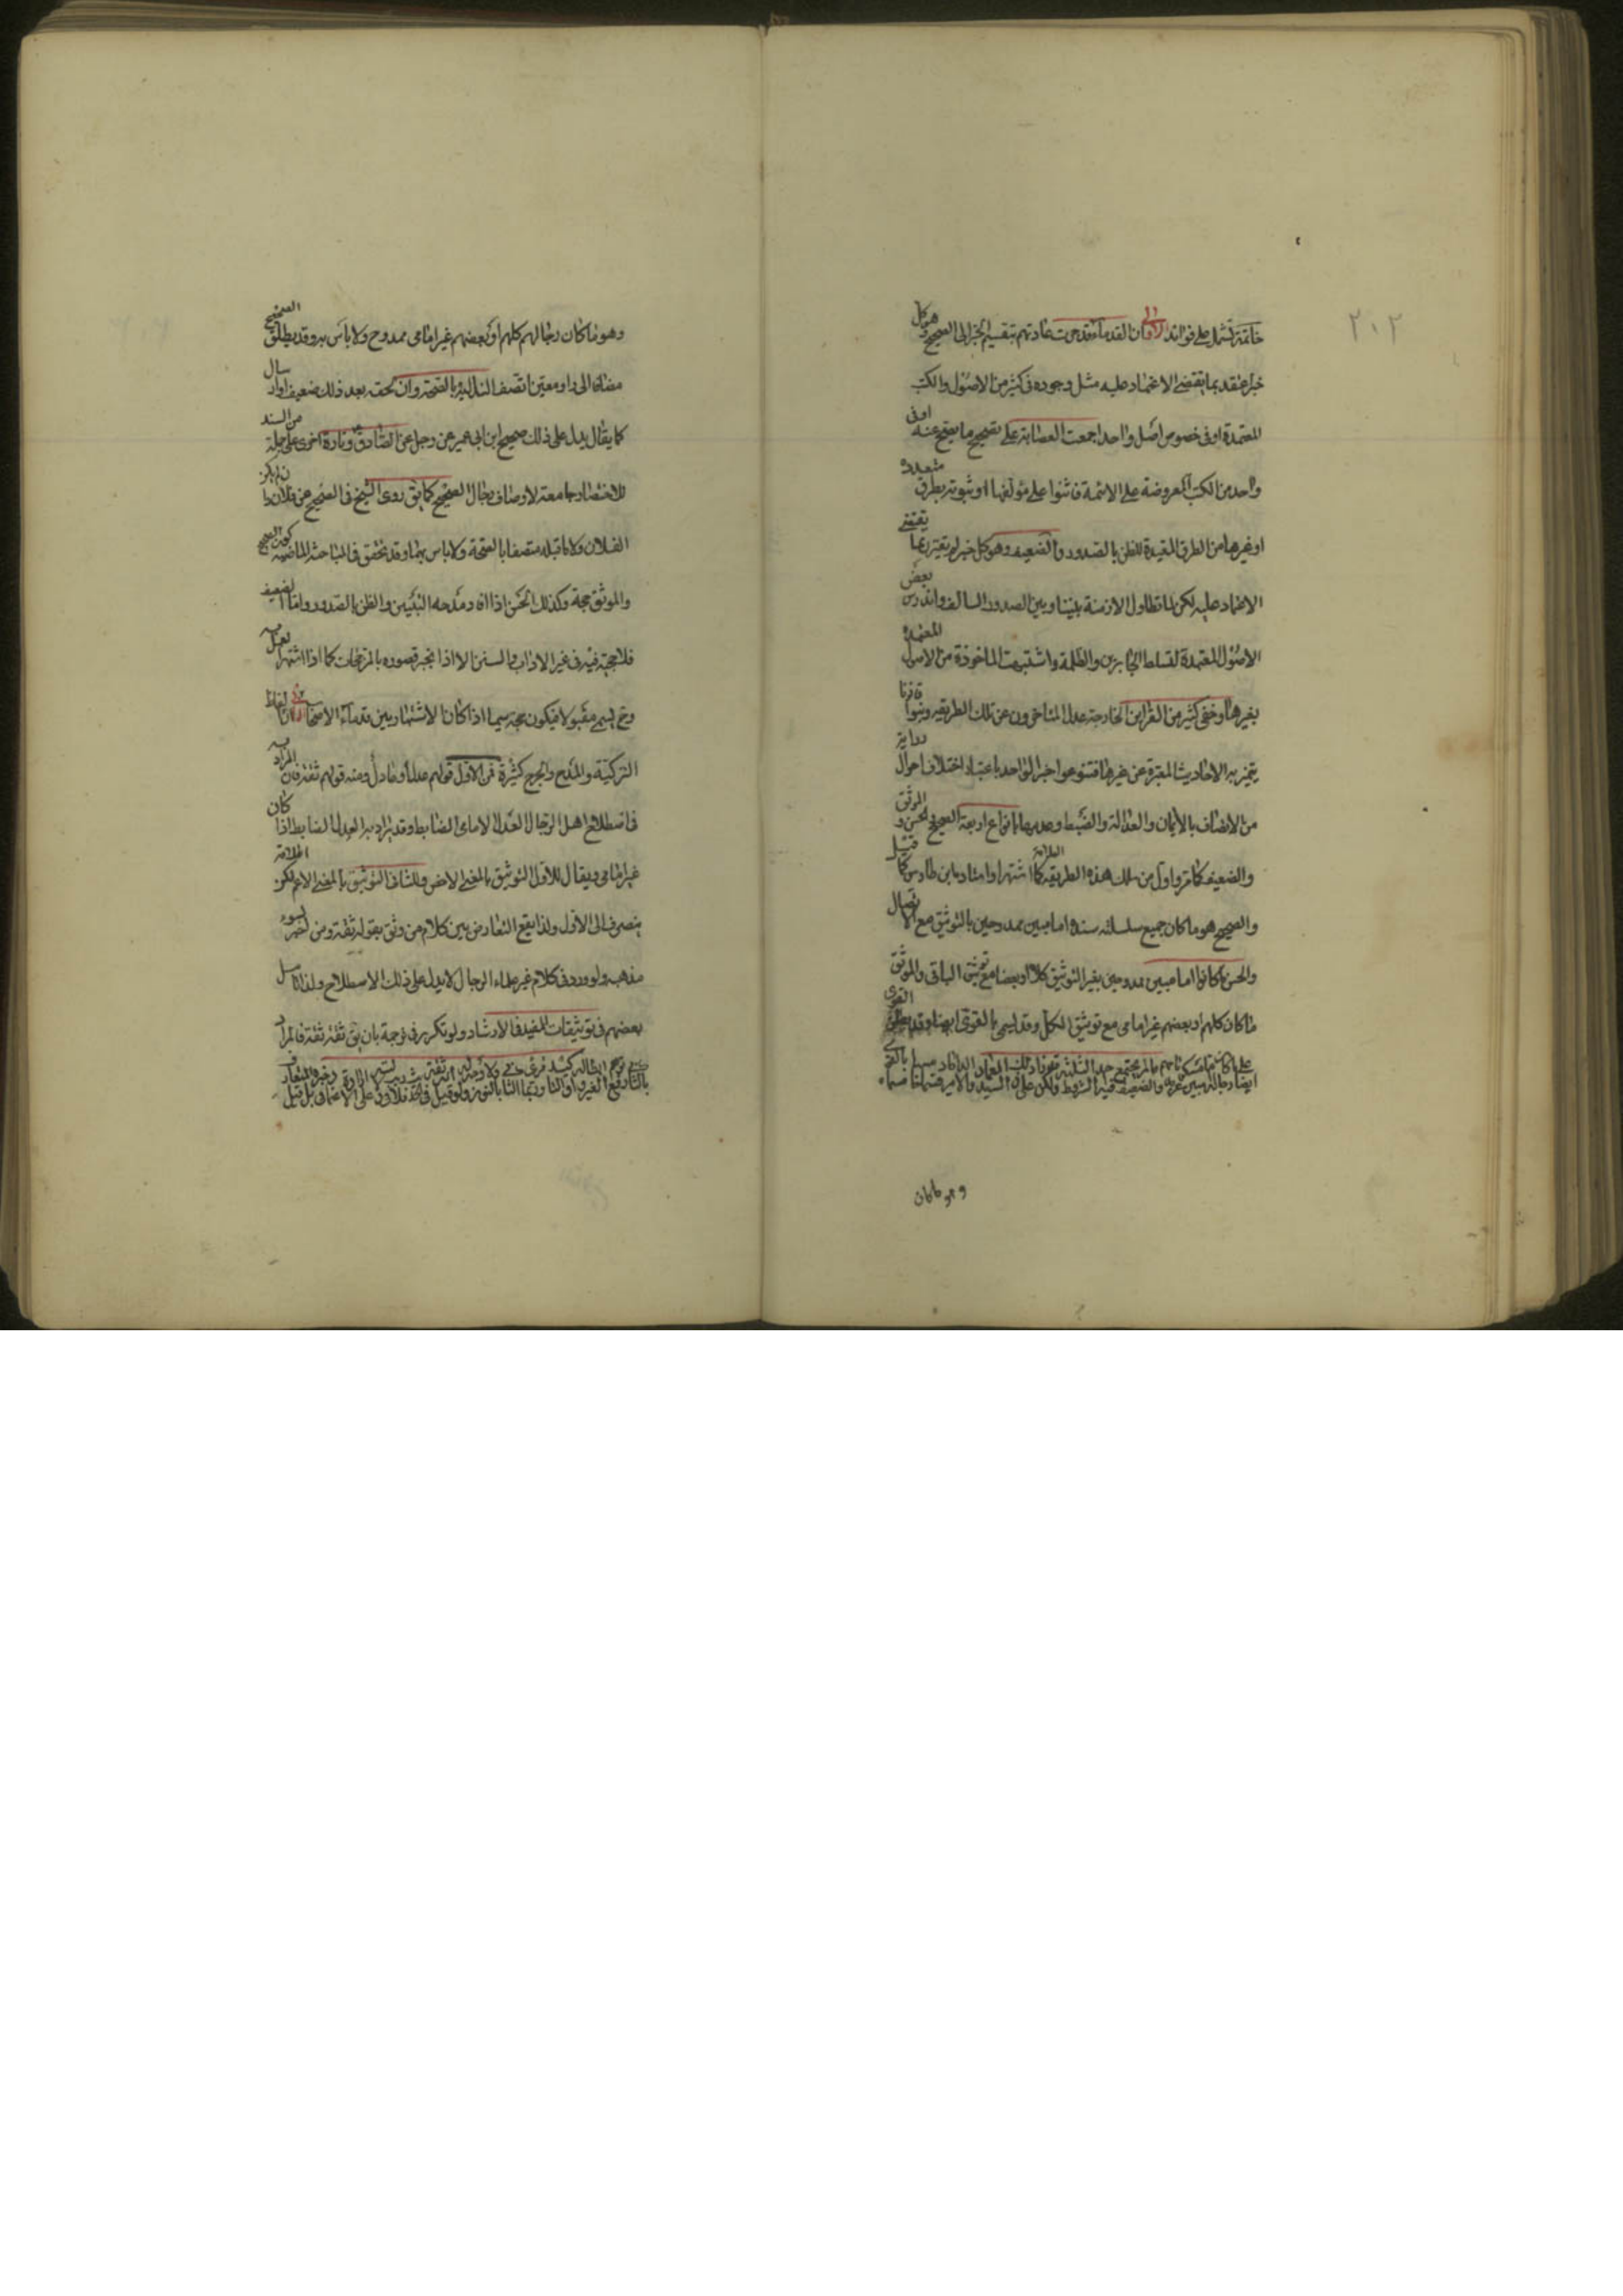 ٢٠٢
خاتمة تشتمل على فوائد الاولى ان القدماء قد جرت عادتهم بتقسيم الخبر الى الصحيح وهو كل
خبر اعتقد بما يقتضى الاعتماد عليه مثل وجوده فى كثير من الاصول والكتب
المعتمدة او فى خصوص اصل واحد اجمعت العصابة على تصحيح ما يصح عنه او فى
واحد من الكتب المعروضة على الائمة فاثنوا على مؤلفها او ثبوته بطرق متعددة
او غيرها من الطرق المفيدة للظن بالصدور والضعيف وهو كل خبر لم يقترن بما يقتضى
الاعتماد عليه لكن لما تطاول الازمنة بيننا وبين الصدور السالف واندرس بعض
الاصول المعتمدة لتسلط الجابرين والظلمة واشتبهت الماخوذة من الاصول المعتمدة
بغيرها وخفى كثير من القراين الخارجة عدل المتاخرون عن تلك الطريقه ونبوا قانونا
يتميز به الاحاديث المعتبرة عن غيرها فتنوعوا خبر الواحد باعتبار اختلاف احوال رواية
من الاتصاف بالايمان والعدالة والضبط وعدمها بانواع اربعة الصحيح والحسن والموثق
والضعيف كما مر واول من سلك هذه الطريقه العلامة كما اشتهر او استاده ابن طاوس كما قيل
والصحيح هو ما كان جميع سلسلة سنده اماميين ممدوحين بالتوثيق مع الاتصال
والحسن ما كانوا اماميين ممدوحين بغير التوثيق كلا او بعضا مع توثيق الباقى والموثق
ما كان كلهم او بعضهم غير امامى مع توثيق الكل وقد يسمى بالقوى ايضا وقد يطلق القوى
وهو ما كان
وهو ما كان رجالهم كلهم او بعضهم غير امامى ممدوح ولا باس به وقد يطلق الصحيح
مضافا الى راو معين اتصف السند اليه بالصحة وان لحقه بعد ذلك ضعيف او ارسال
كما يقال يدل على ذلك صحيح ابن ابى عمير عن رجل عن الصادق ع وتارة اخرى على جملة من السند
للاختصار جامعة لاوصاف رجال الصحيح كما يق روى الشيخ فى الصحيح عن فلان
الفلان ولا ما قبله متصفا بالصحة ولا باس بهما وقد تحقق فى المباحث الماضيه كون الصحيح
والموثق حجة وكذلك الحسن اذا افاد مدحه التبيين والظن بالصدور واما الضعيف
فلا حجية فيه فى غير الاداب والسنن الا اذا انجبر قصوره بالمرجحات كما اذا اشتهر العمل به
وح يسمى مقبولا فيكون حجة سيما اذا كان الاشتهار بين قدماء الاصحاب الثانى الفاظ
التزكية والمدح والجرح كثيرة فمن الاول قولهم عدل او عادل ومنه قولهم ثقة فان المراد به
فى اصطلاح اهل الرجال العدل الامامى الضابط وقد يراد به العدل الضابط اذا كان
غير امامى ويقال للاول التوثيق بالمعنى الاخص وللثانى التوثيق بالمعنى الاعم لكن اطلاقه
ينصرف الى الاول ولذا يقع التعارض بين كلام من وثق بقوله ثقة ومن اخبر بسوء
مذهبه ولو ورد فى كلام غير علماء الرجال لا يدل على ذلك الاصطلاح ولذا تامل
بعضهم فى توثيقات المفيد فى الارشاد ولو تكرر فى ترجمة بان يق ثقة ثقة فالمراد